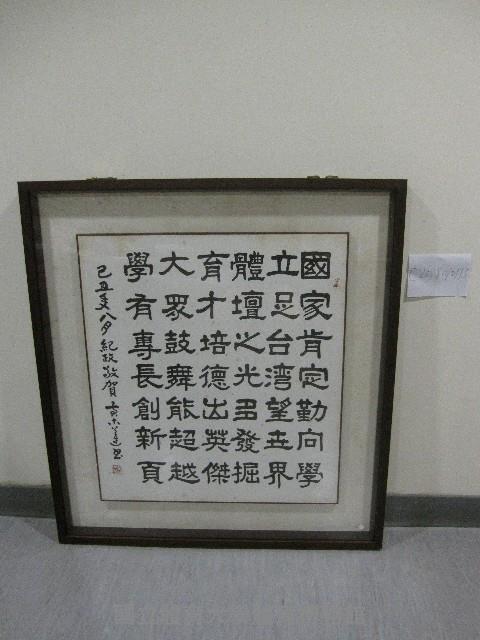 國家肯定勤向學
立足台灣望世界
體壇之光多發掘
育才培德出英傑
大眾鼓舞能超越
學有專長創新頁
己丑年八月紀政敬賀